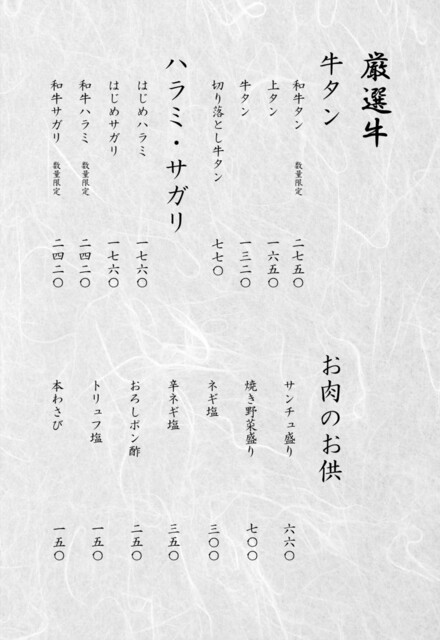 厳選牛
牛タン
和牛タン 数量限定 二七五〇
上タン 一六五〇
牛タン 一三二〇
切り落とし牛タン 七七〇
ハラミ・サガリ
はじめハラミ 一七六〇
はじめサガリ 一七六〇
和牛ハラミ 数量限定 二四二〇
和牛サガリ 数量限定 二四二〇
お肉のお供
サンチュ盛り 六六〇
焼き野菜盛り 七〇〇
ネギ塩 三〇〇
辛ネギ塩 三五〇
おろしポン酢 二五〇
トリュフ塩 一五〇
本わさび 一五〇